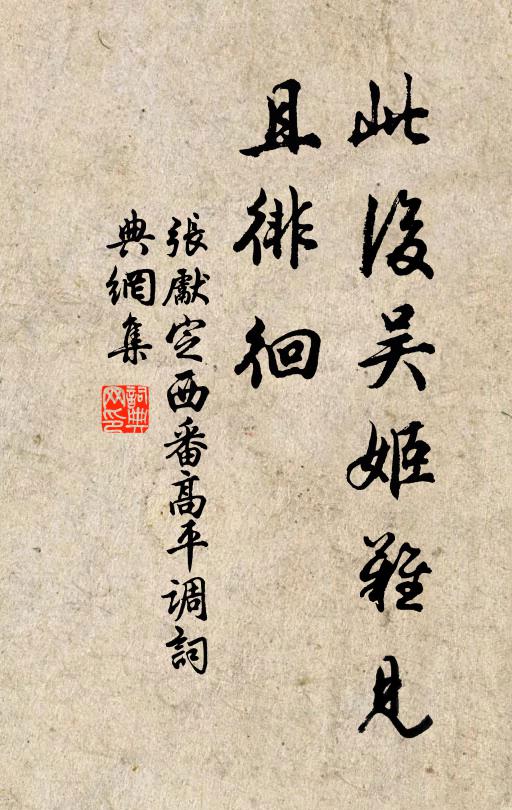 此後吴姬難見
且徘徊
張獻定西番高平调詞
典網集
詞典网印